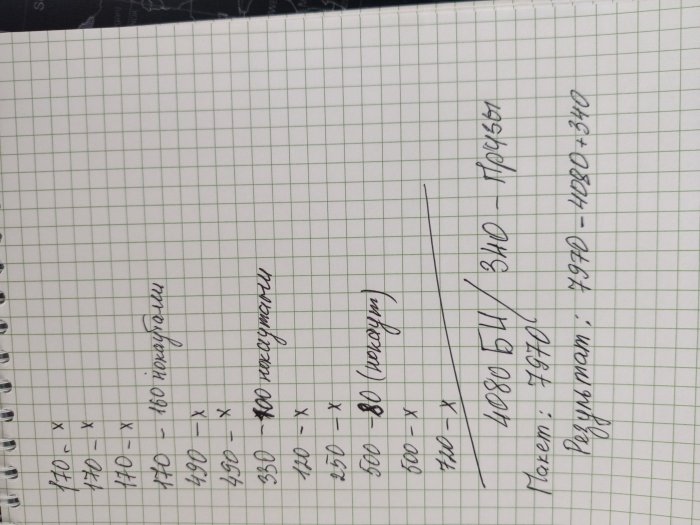 170 - x
170 - x
170 - x
170 - 160 нокаутами
490 - x
490 - x
330 - 100 нокаутами
120 - x
250 - x
500 - 80 (нокаут)
500 - x
720 - x
4080 БИ / 340 - Призы
Пакет: 7970
Результат: 7970 - 4080 + 340